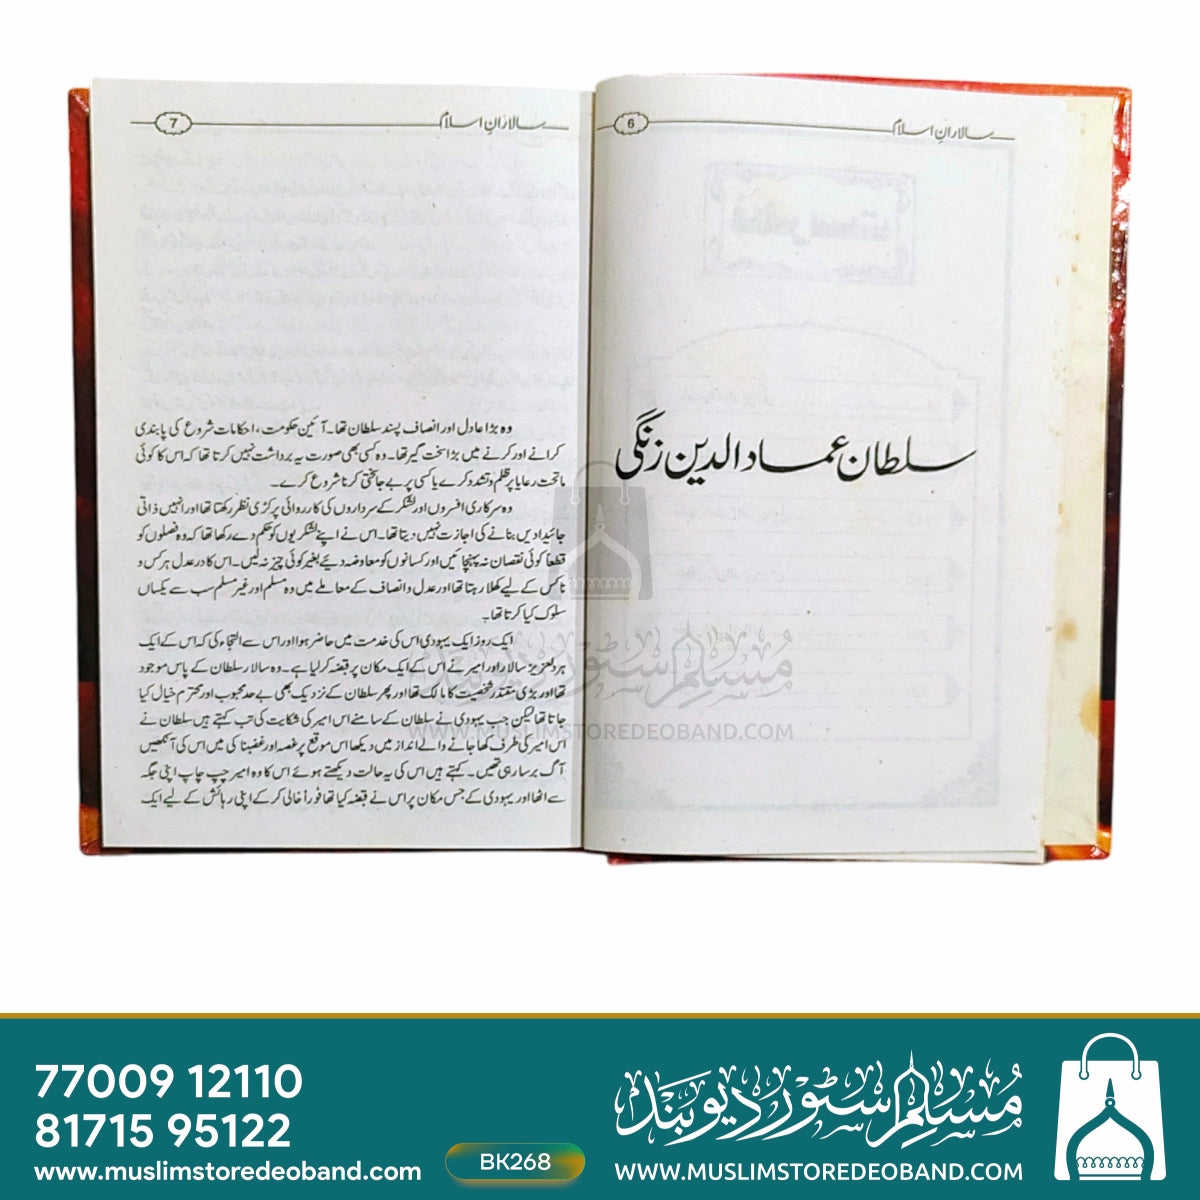 سالارانِ اسلام 6
سلطان عماد الدین زنگی
سالارانِ اسلام 7
وہ بڑا عادل اور انصاف پسند سلطان تھا۔ آئین حکومت، احکامات شروع کی پابندی
کرانے اور کرنے میں بڑا سخت گیر تھا۔ وہ کسی بھی صورت یہ برداشت نہیں کرتا تھا کہ اس کا کوئی
ماتحت رعایا پر ظلم و تشدد کرے یا کسی پر بے جا سختی کرنا شروع کرے۔
وہ سرکاری افسروں اور لشکر کے سرداروں کی کارروائی پر کڑی نظر رکھتا تھا اور انہیں ذاتی
جائیدادیں بنانے کی اجازت نہیں دیتا تھا۔ اس نے اپنے لشکریوں کو حکم دے رکھا تھا کہ وہ فصلوں کو
قطعاً کوئی نقصان نہ پہنچائیں اور کسانوں کو معاوضہ دیئے بغیر کوئی چیز نہ لیں۔ اس کا در عدل ہر کس و
ناکس کے لیے کھلا رہتا تھا اور عدل و انصاف کے معاملے میں وہ مسلم اور غیر مسلم سب سے یکساں
سلوک کیا کرتا تھا۔
ایک روز ایک یہودی اس کی خدمت میں حاضر ہوا اور اس سے التجاء کی کہ اس کے ایک
ہر دلعزیز سالار اور امیر نے اس کے ایک مکان پر قبضہ کر لیا ہے۔ وہ سالار سلطان کے پاس موجود
تھا اور بڑی مقتدر شخصیت کا مالک تھا اور پھر سلطان کے نزدیک بھی بے حد محبوب اور محترم خیال کیا
جاتا تھا لیکن جب یہودی نے سلطان کے سامنے اس امیر کی شکایت کی تب کہتے ہیں سلطان نے
اس امیر کی طرف کھا جانے والے انداز میں دیکھا اس موقع پر غصہ اور غضبناکی میں اس کی آنکھیں
آگ برسا رہی تھیں۔ کہتے ہیں اس کی یہ حالت دیکھتے ہوئے اس کا وہ امیر چپ چاپ اپنی جگہ
سے اٹھا اور یہودی کے جس مکان پر اس نے قبضہ کیا تھا فوراً خالی کر کے اپنی رہائش کے لیے ایک
مسلم سٹور دیوبند
WWW.MUSLIMSTOREDEOBAND.COM
77009 12110
81715 95122
www.muslimstoredeoband.com
BK268
مسلم سٹور دیوبند
WWW.MUSLIMSTOREDEOBAND.COM